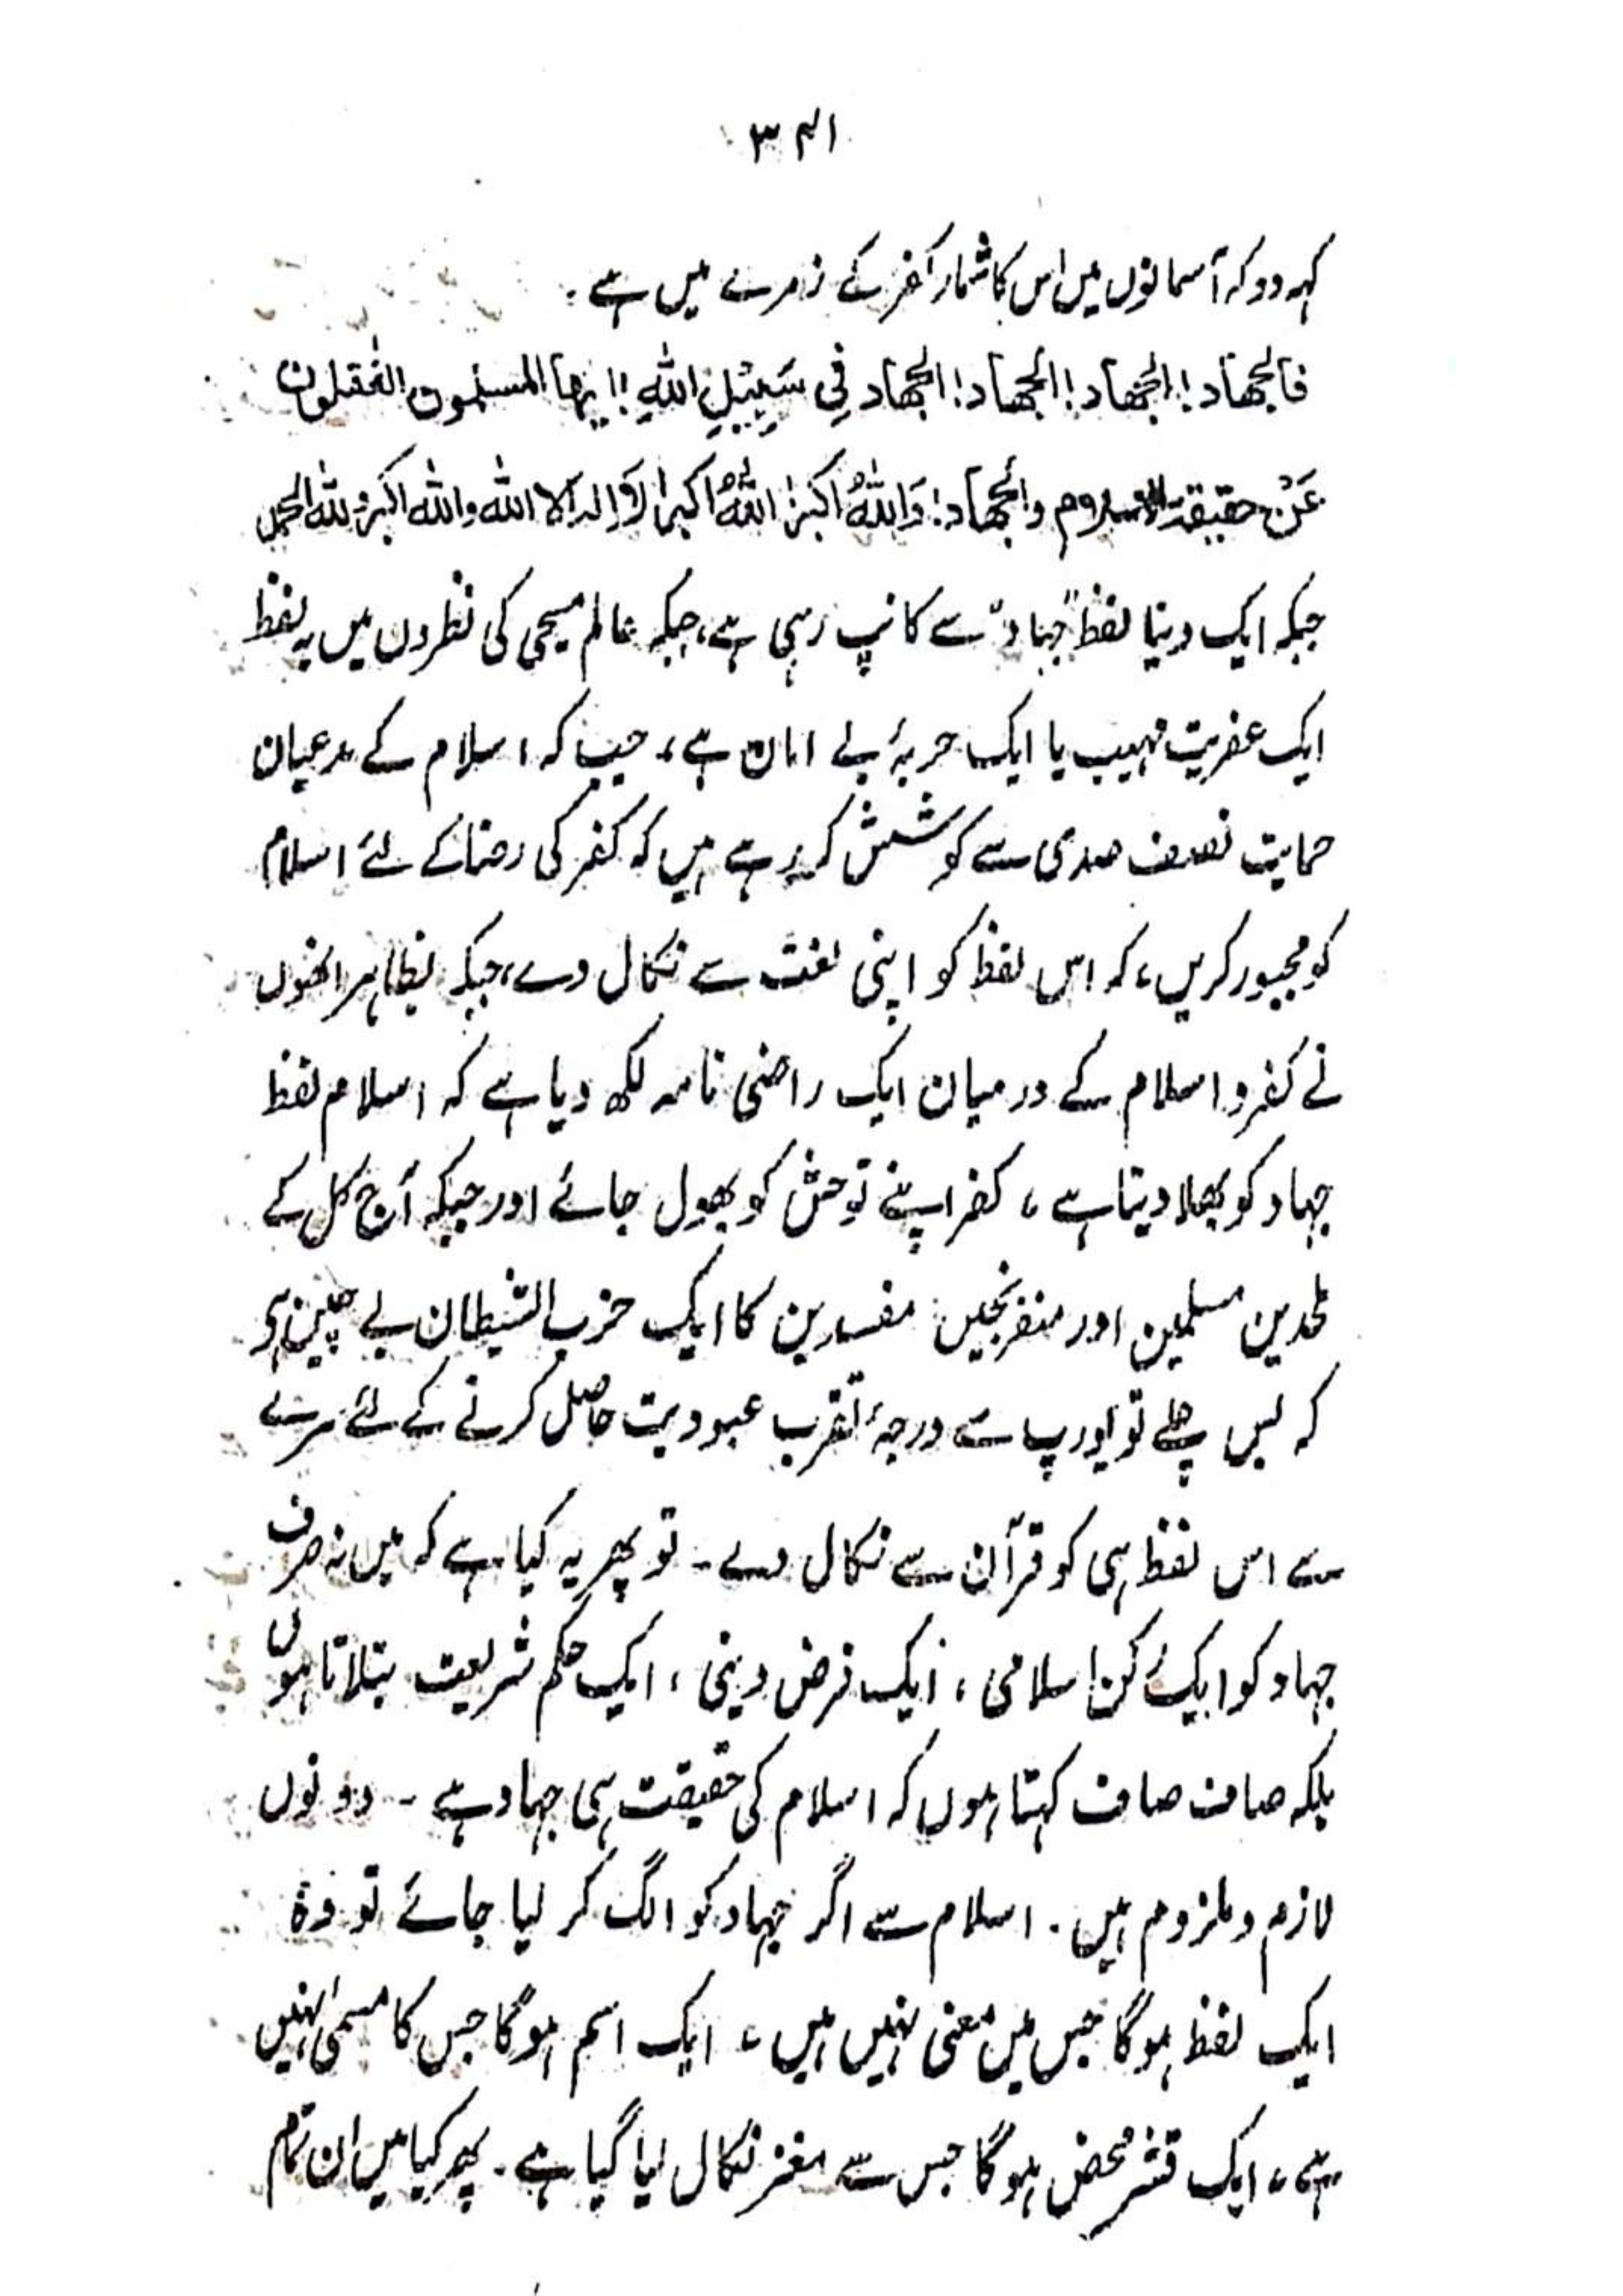 ۳۴۱
کہہ دو کہ آسمانوں میں اس کا شمار کفر کے زمرے میں ہے۔
فالجهاد! الجهاد! الجهاد! الجهاد فِي سَبِيْلِ اللهِ! ایہا المسلمون الغٰفلون
عَنْ حقیقۃ الاسلام والجهاد! وَاللهُ اکبر! اللهُ اکبر! لَا اِلٰہ اِلا الله واللہ اکبر وللہ الحمد
جبکہ ایک دنیا لفظ "جہاد" سے کانپ رہی ہے، جبکہ عالم مسیحی کی نظروں میں یہ لفظ
ایک عفریت مہیب یا ایک حربۂ بے امان ہے، جب کہ اسلام کے مدعیان
حمایت نصف صدی سے کوشش کر رہے ہیں کہ کفر کی رضا کے لئے اسلام
کو مجبور کریں، کہ اس لفظ کو اپنی لغت سے نکال دے، جبکہ بظاہر انھوں
نے کفر و اسلام کے درمیان ایک راضی نامہ لکھ دیا ہے کہ اسلام لفظ
جہاد کو بھلا دیتا ہے، کفر اپنے توحش کو بھول جائے اور جبکہ آج کل کے
ملحدین مسلمین اور متفرنجین مفسدین کا ایک حزب الشیطان بے چین ہے
کہ بس چلے تو یورپ سے درجۂ تقرب عبودیت حاصل کرنے کے لئے سرے
سے اس لفظ ہی کو قرآن سے نکال دے۔ تو پھر یہ کیا ہے کہ میں نہ صرف
جہاد کو ایک رکن اسلامی، ایک فرض دینی، ایک حکم شریعت بتلاتا ہوں
بلکہ صاف صاف کہتا ہوں کہ اسلام کی حقیقت ہی جہاد ہے۔ دونوں
لازم و ملزوم ہیں۔ اسلام سے اگر جہاد کو الگ کر لیا جائے تو وہ
ایک لفظ ہوگا جس میں معنی نہیں ہیں، ایک اسم ہوگا جس کا مسمیٰ نہیں
ہے، ایک قشر محض ہوگا جس سے مغز نکال لیا گیا ہے۔ پھر کیا میں ان تمام